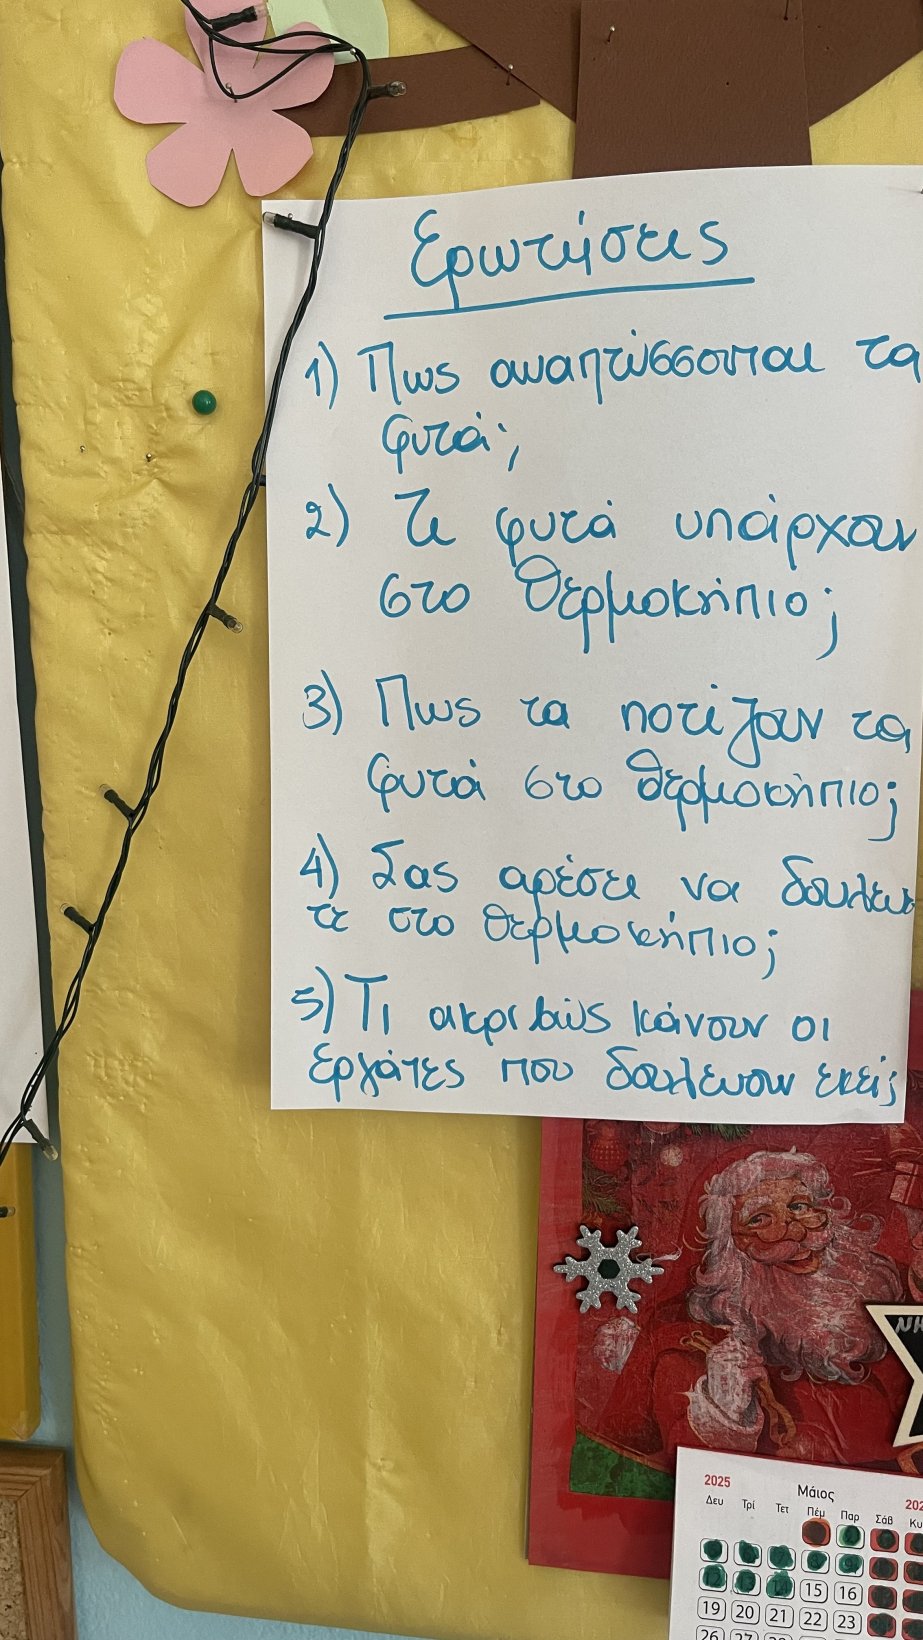 Ερωτήσεις
1) Πως αναπτύσσονται τα
φυτά;
2) Τι φυτά υπάρχουν
στο θερμοκήπιο;
3) Πως τα ποτίζουν τα
φυτά στο θερμοκήπιο;
4) Σας αρέσει να δουλεύε
τε στο θερμοκήπιο;
5) Τι ακριβώς κάνουν οι
εργάτες που δουλεύουν εκεί;
2025 Μάιος 202
Δευ Τρί Τετ Πέμ Παρ Σάβ Κυ
15 16
19 20 21 22 23
26 27